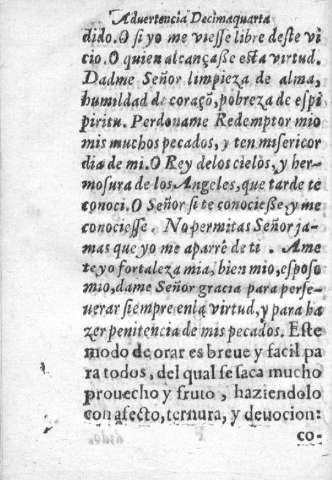 Aduertencia Decimaquarta
dido. O si yo me viesse libre deste vi
cio. O quien alcançaße esta virtud.
Dadme Señor limpieza de alma,
humildad de coraçõ, pobreza de espi
piritu. Perdoname Redemptor mio
mis muchos pecados, y ten misericor
dia de mi. O Rey delos cielos, y her-
mosura de los Angeles, que tarde te
conoci. O Señor si te conocieße, y me
conociesse. No permitas Señor ja-
mas que yo me aparte de ti. Ame
te yo fortaleza mia, bien mio, esposo
mio, dame Señor gracia para perse-
uerar siempre enla virtud, y para ha
zer penitencia de mis pecados. Este
modo de orar es breue y facil pa
ra todos, del qual se saca mucho
prouecho y fruto, haziendolo
con afecto, ternura, y deuocion:
co-